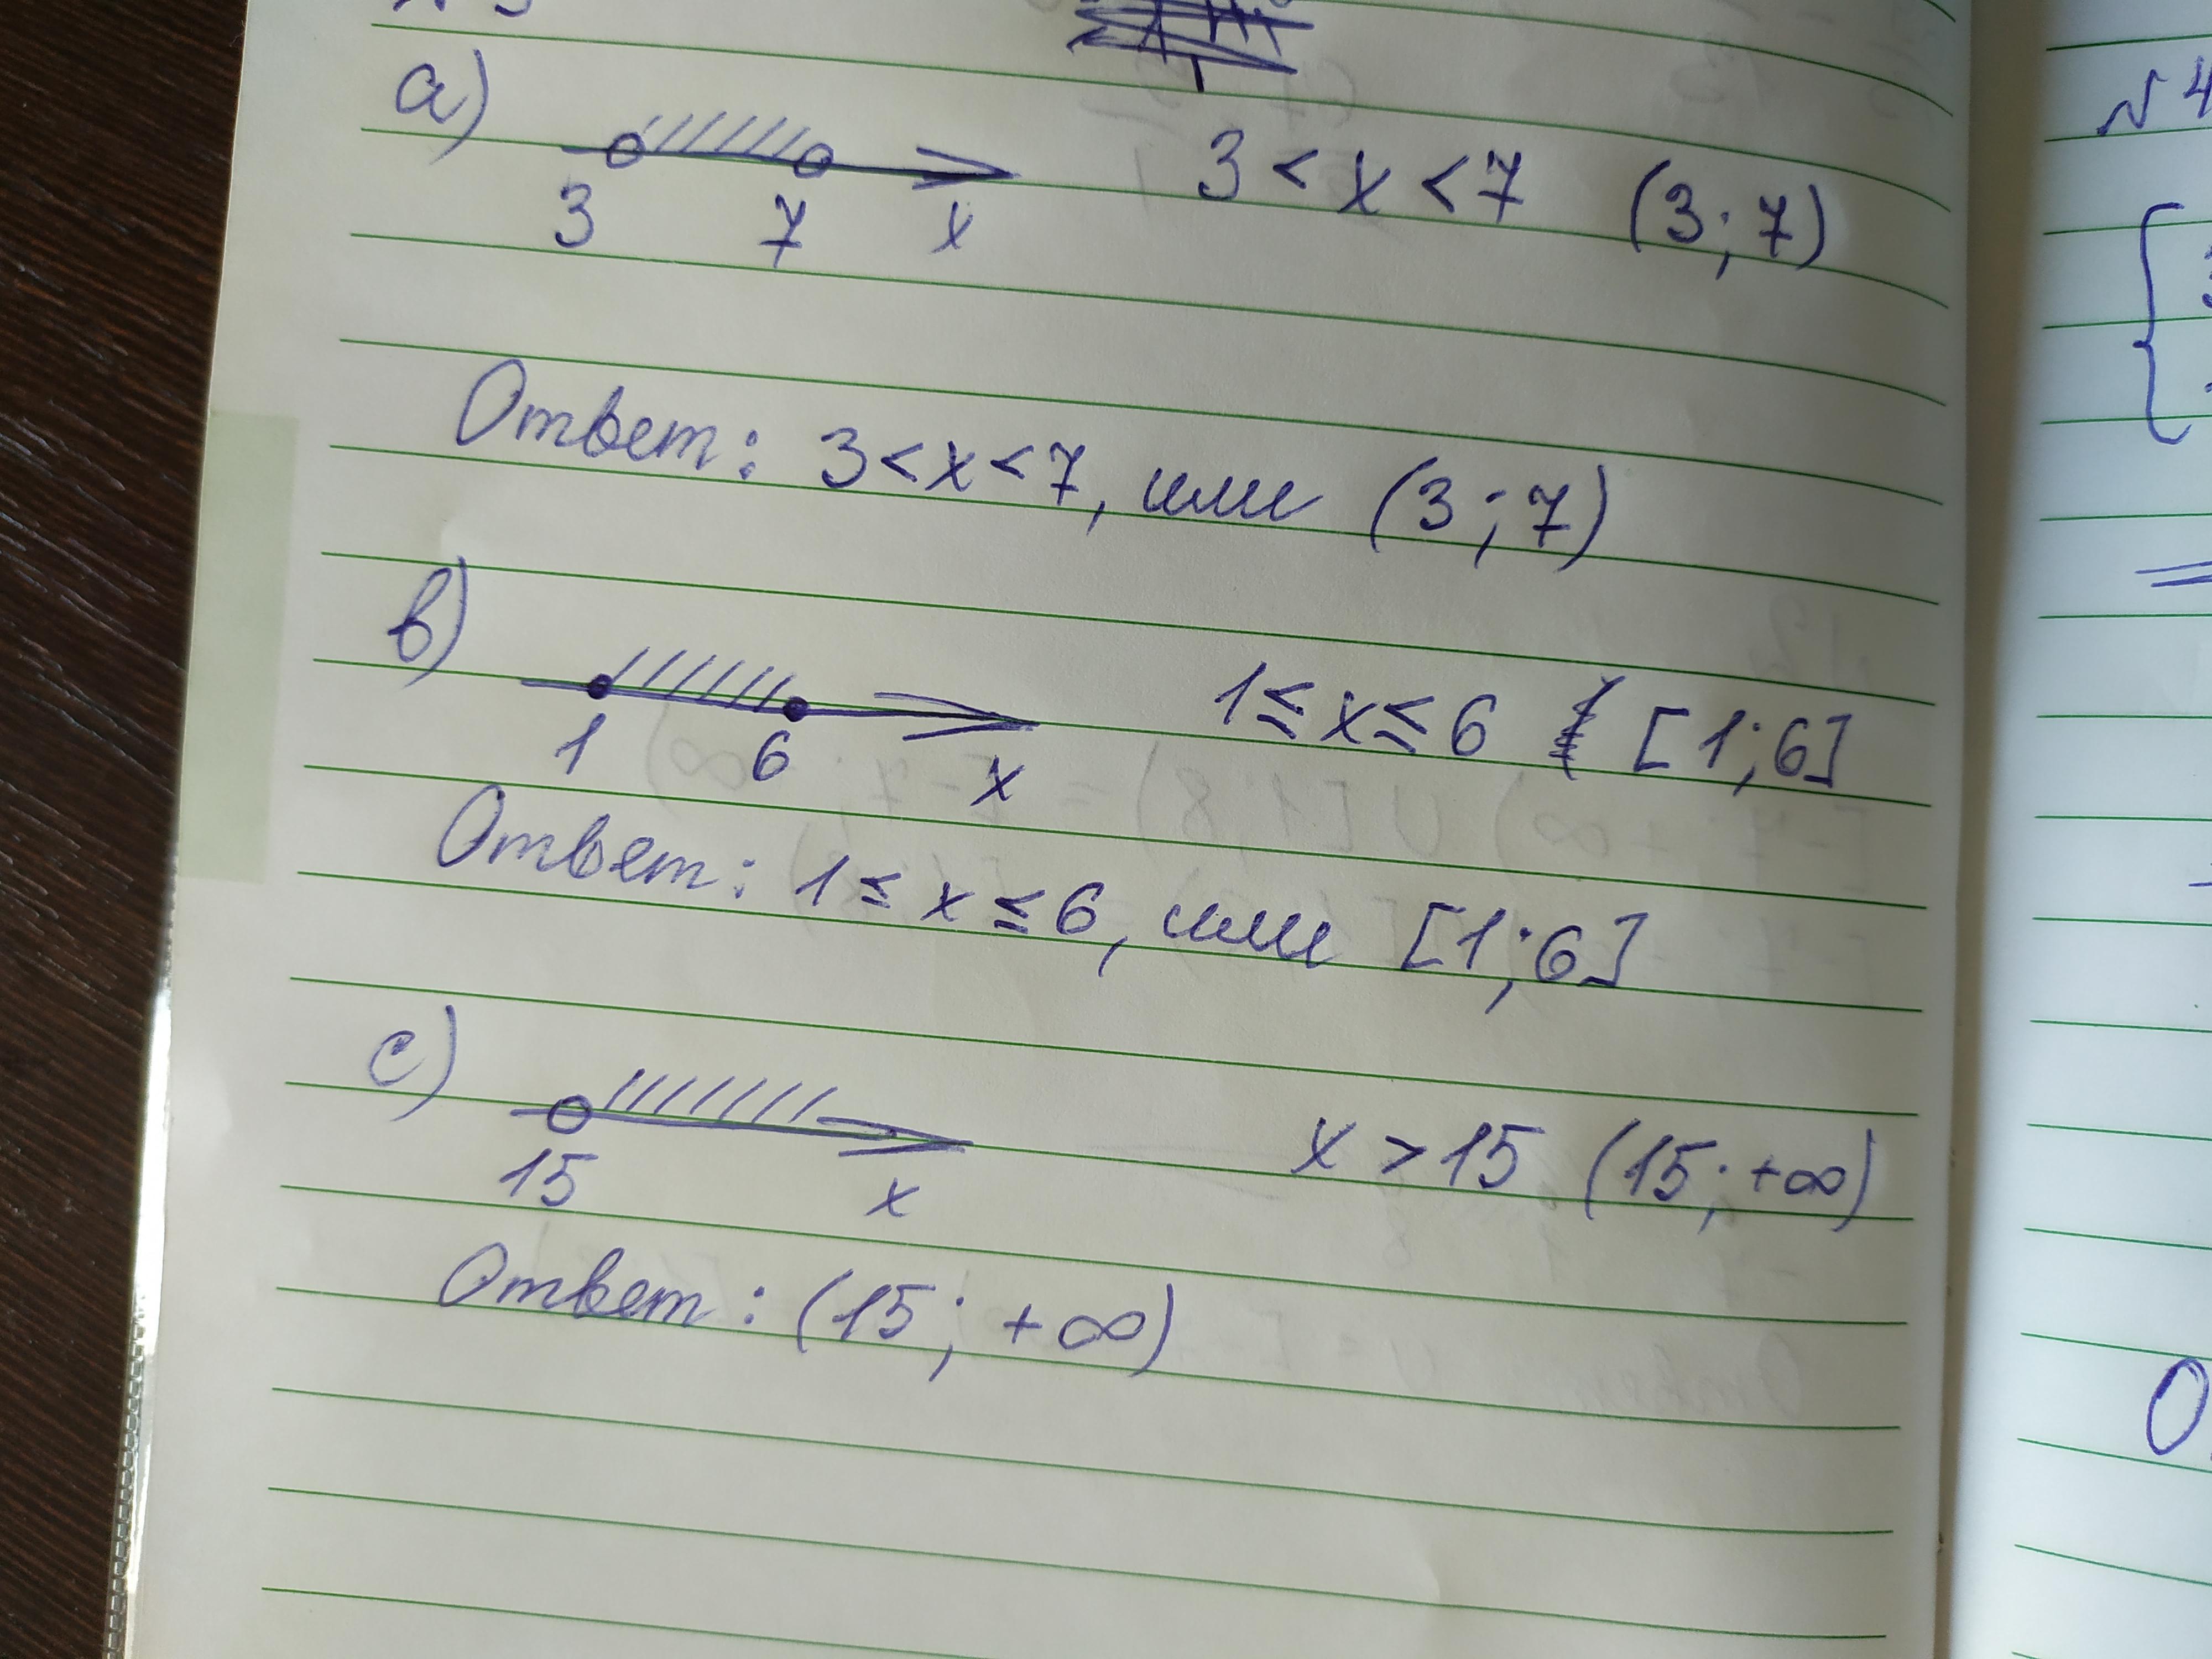 а)
3 7 x 3 < x < 7 (3; 7)
Ответ: 3 < x < 7, или (3; 7)
в)
1 6 x 1 ≤ x ≤ 6 [1; 6]
Ответ: 1 ≤ x ≤ 6, или [1; 6]
с)
15 x x > 15 (15; +∞)
Ответ: (15; +∞)
№4